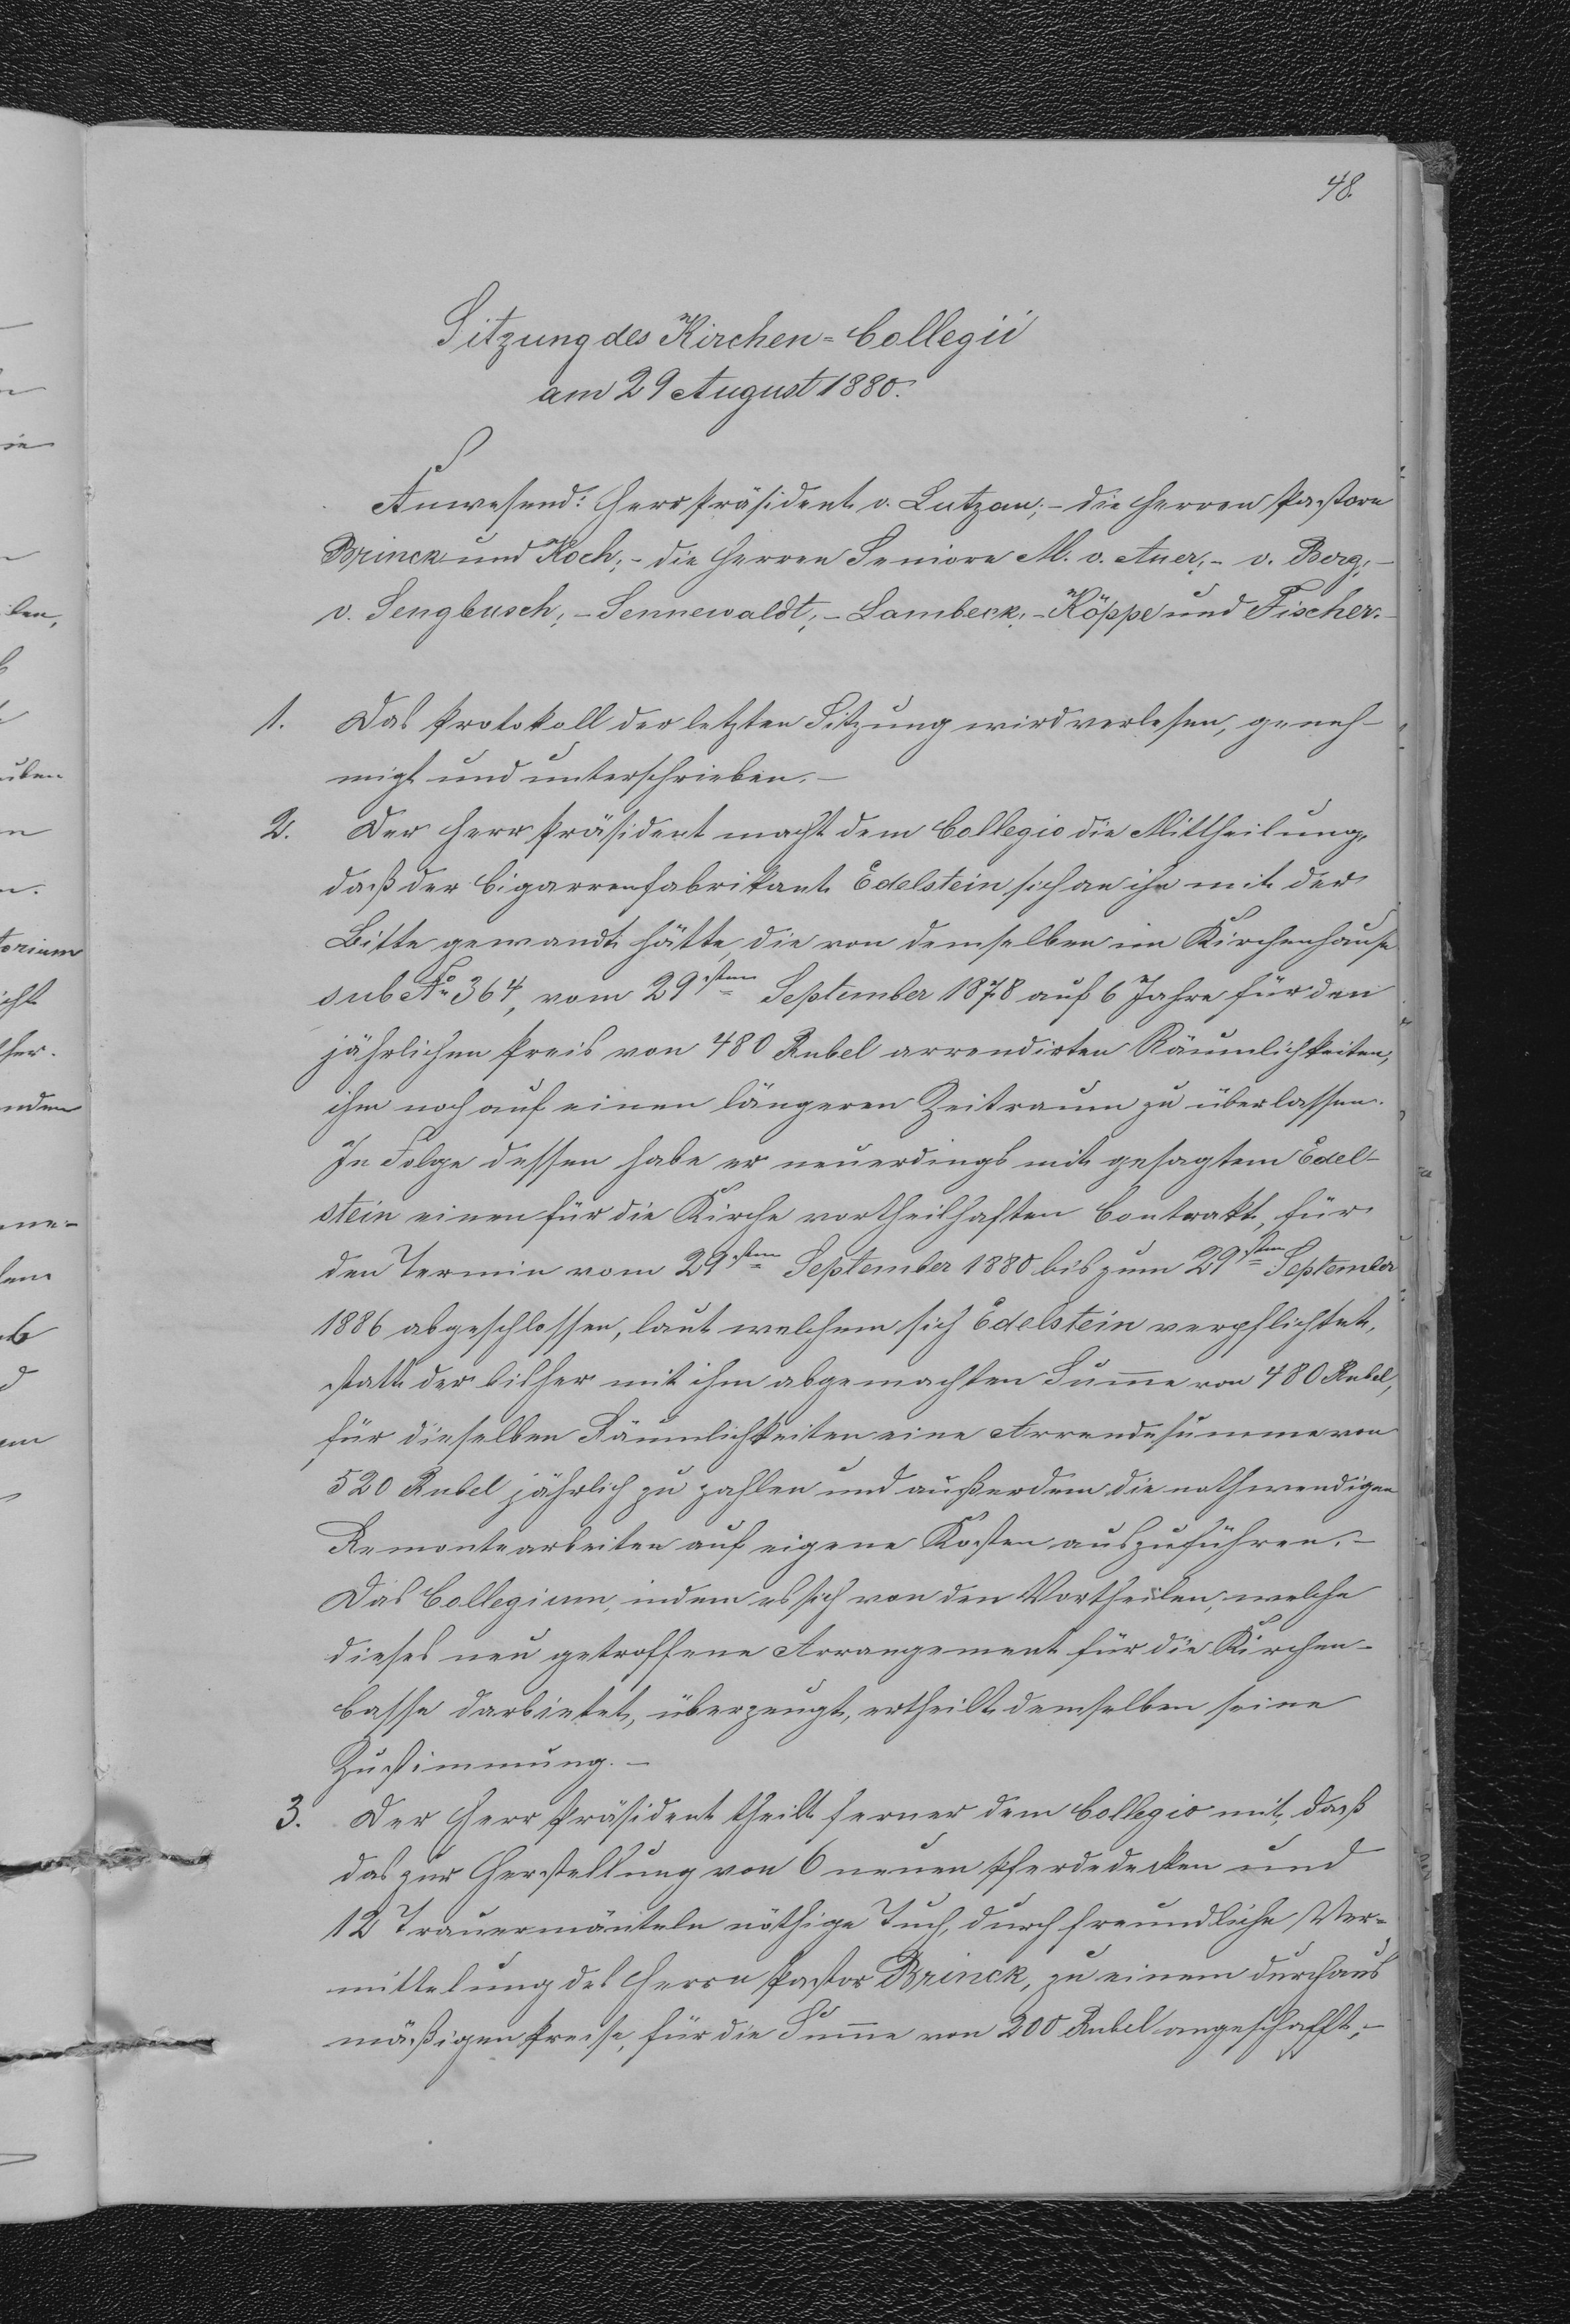 48.
Sitzung des Kirchen-Collegii
am 29 August 1880.
Anwesend: Herr Präsident v. Lutzau; – die Herren Pastore
Brinck und Koch; – die Herren Seniore M. v. Auer; – v. Berg; –
v. Sengbusch; – Sennewaldt; – Lambeck; – Köppe und Fischer. –
1. Das Protokoll der letzten Sitzung wird verlesen, geneh-
migt und unterschrieben. –
2. Der Herr Präsident macht dem Collegio die Mittheilung,
daß der Cigarrenfabrikant Edelstein sich an ihn mit der
Bitte gewandt hätte, die von demselben im Kirchenhause
sub No 364, vom 29sten September 1878 auf 6 Jahre für den
jährlichen Preis von 480 Rubel arrendirten Räumlichkeiten,
ihm noch auf einen längeren Zeitraum zu überlassen.
In Folge dessen habe er neuerdings mit gesagtem Edel-
stein einen für die Kirche vortheilhaften Contrakt, für
den Termin vom 29sten September 1880 bis zum 29sten September
1886 abgeschlossen, laut welchem sich Edelstein verpflichtet,
statt der bisher mit ihm abgemachten Summe von 480 Rubel,
für dieselben Räumlichkeiten eine Arrendesumme von
520 Rubel jährlich zu zahlen und außerdem die nothwendigen
Remontearbeiten auf eigene Kosten auszuführen. –
Das Collegium, indem es sich von den Vortheilen, welche
dieses neu getroffene Arrangement für die Kirchen-
casse darbietet, überzeugt, ertheilt demselben seine
Zustimmung. –
3. Der Herr Präsident theilt ferner dem Collegio mit, daß
das zur Herstellung von 6 neuen Pferdedecken und
12 Trauermänteln nöthige Tuch, durch freundliche Ver-
mittelung des Herrn Pastor Brinck, zu einem durchaus
mäßigen Preise, für die Summe von 200 Rubel angeschafft, –